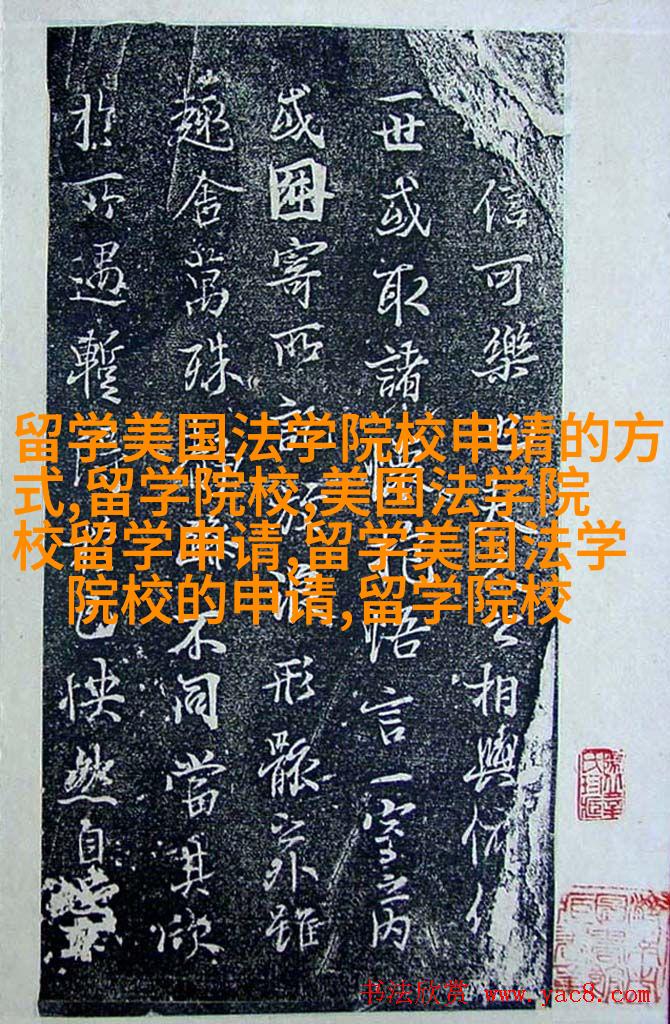 信可樂也夫人之相與俯仰
一世或取諸懷抱悟言一室之内
或因寄所託放浪形骸之外雖
趣舍萬殊静躁不同當其欣
於所遇暫得於己怏然自
留学美国法学院校申请的方
式,留学院校,美国法学院
校留学申请,留学美国法学
院校的申请,留学院校
书法欣赏 www.yac8.com